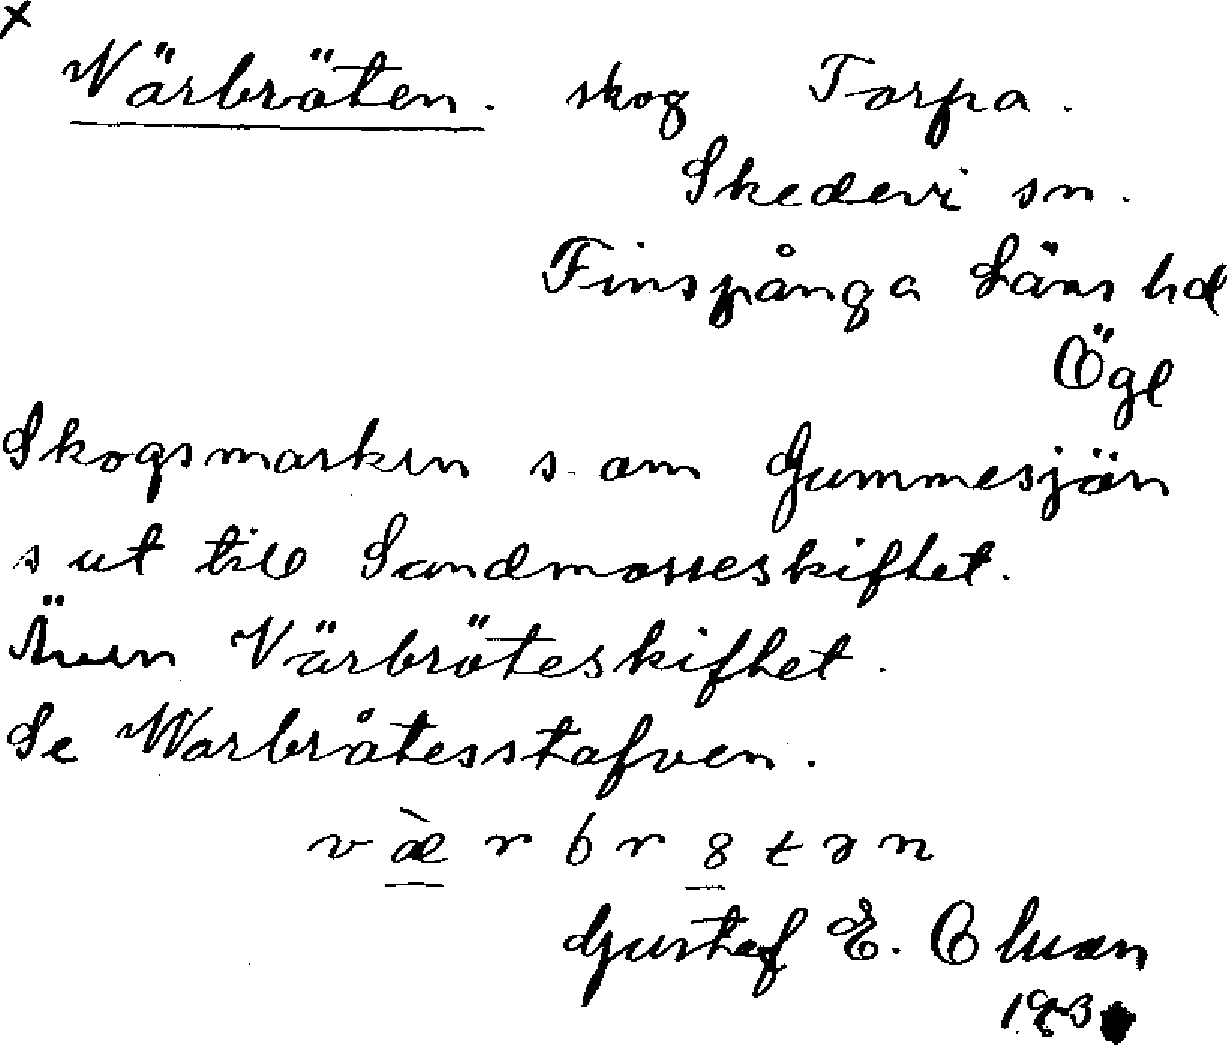 x
Värbröten. skog Torpa.
Skedevi sn.
Finspånga Läns hd
Ögl
Skogsmarken s. om Gummesjön
s ut till Sandmosseskiftet.
Även Värbröteskiftet.
Se Warbråtesstafven.
v æ̀ r b r 8 t ə n
Gustaf E.